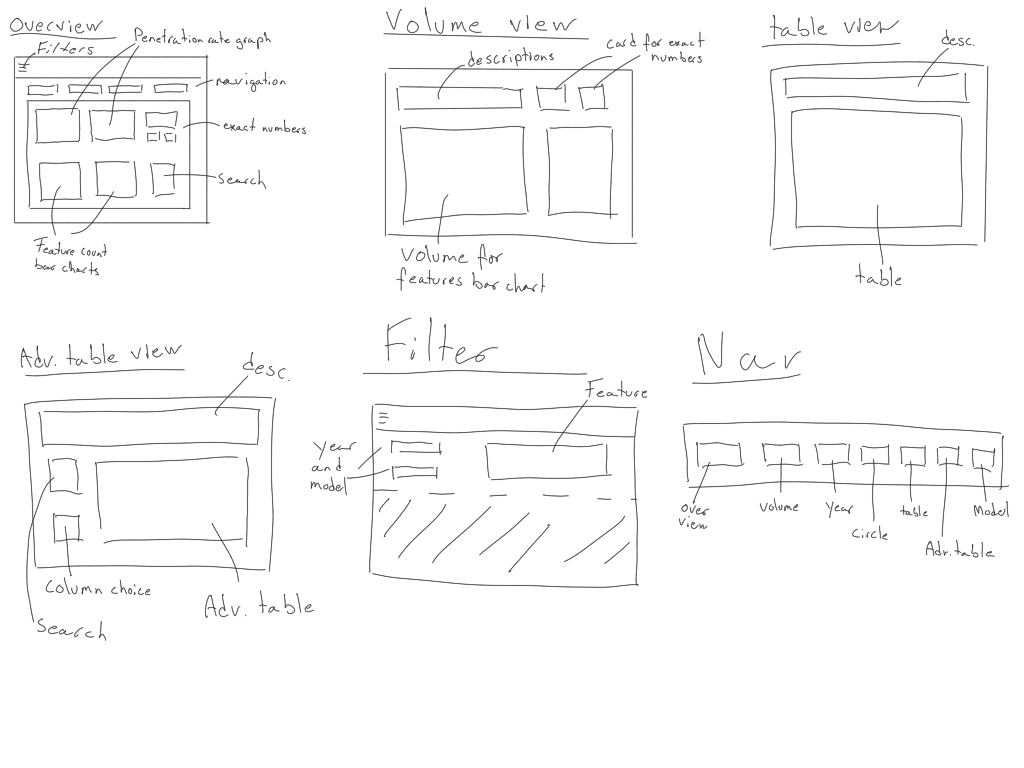 Overview
Filters
Penetration rate graph
navigation
exact numbers
Search
Feature count
bar charts
Volume view
descriptions
card for exact
numbers
Volume for
features bar chart
table view
desc.
table
Adv. table view
desc.
Column choice
Search
Adv. table
Filter
Feature
Year
and
model
Nav
Over
view
Volume
Year
Circle
table
Adv. table
Model